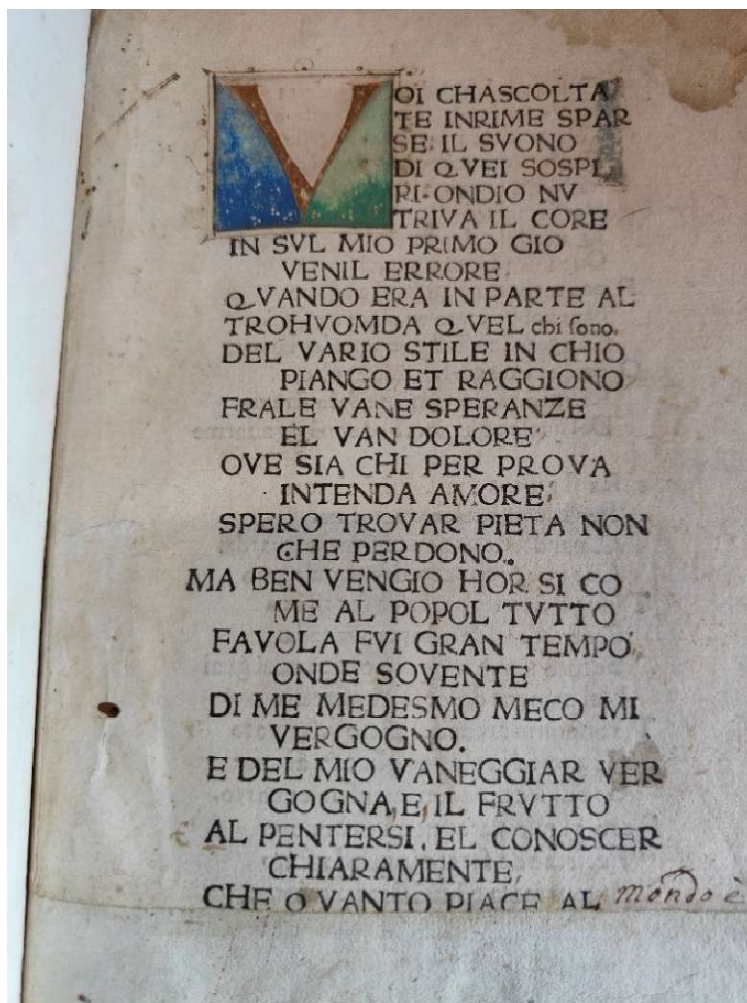 VOI CHASCOLTA
TE INRIME SPAR
SE IL SVONO
DI QVEI SOSPI
RI ONDIO NV
TRIVA IL CORE
IN SVL MIO PRIMO GIO
VENIL ERRORE
QVANDO ERA IN PARTE AL
TROHVOMDA QVEL chi sono.
DEL VARIO STILE IN CHIO
PIANGO ET RAGGIONO
FRALE VANE SPERANZE
EL VAN DOLORE
OVE SIA CHI PER PROVA
INTENDA AMORE,
SPERO TROVAR PIETA NON
CHE PERDONO.
MA BEN VENGIO HOR SI CO
ME AL POPOL TVTTO
FAVOLA FVI GRAN TEMPO,
ONDE SOVENTE
DI ME MEDESMO MECO MI
VERGOGNO.
E DEL MIO VANEGGIAR VER
GOGNA, E, IL FRVTTO
AL PENTERSI, EL CONOSCER
CHIARAMENTE,
CHE QVANTO PIACE AL mondo è